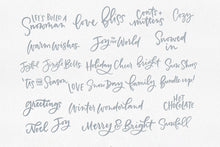 LET'S BUILD A Snowman
love bliss
Coats + mittens
Cozy
Warm Wishes
Joy to the World
Snowed in
Joyful
Jingle Bells
Holiday Cheer
Sun Shoes
'tis the Season
LOVE
Snow Day
family
Bundle up!
greetings
Winter Wonderland
HOT CHOCOLATE
Noel
Joy
Merry & Bright
Snowfall